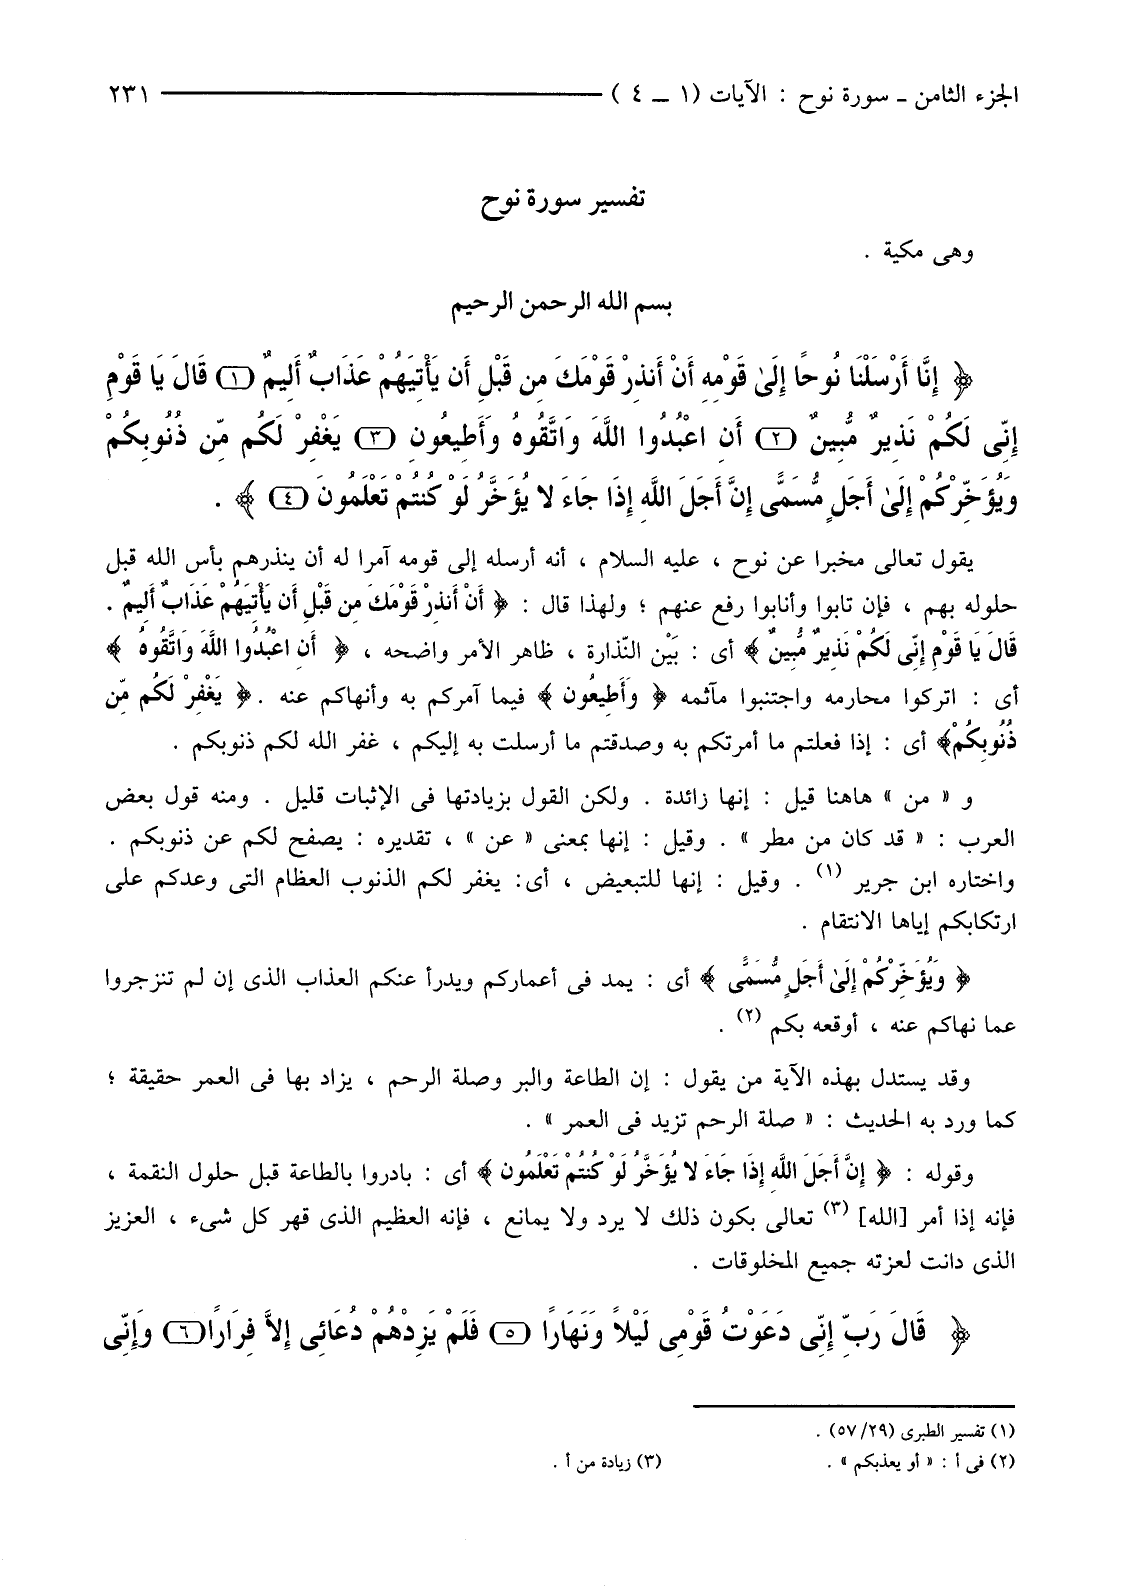 الجزء الثامن ـ سورة نوح : الآيات (١ ــ ٤ ) ٢٣١
تفسير سورة نوح
وهى مكية .
بسم الله الرحمن الرحيم
﴿ إِنَّا أَرْسَلْنَا نُوحًا إِلَىٰ قَوْمِهِ أَنْ أَنذِرْ قَوْمَكَ مِن قَبْلِ أَن يَأْتِيَهُمْ عَذَابٌ أَلِيمٌ (١) قَالَ يَا قَوْمِ
إِنِّى لَكُمْ نَذِيرٌ مُّبِينٌ (٢) أَنِ اعْبُدُوا اللَّهَ وَاتَّقُوهُ وَأَطِيعُونِ (٣) يَغْفِرْ لَكُم مِّن ذُنُوبِكُمْ
وَيُؤَخِّرْكُمْ إِلَىٰ أَجَلٍ مُّسَمًّى إِنَّ أَجَلَ اللَّهِ إِذَا جَاءَ لا يُؤَخَّرُ لَوْ كُنتُمْ تَعْلَمُونَ (٤) ﴾ .
يقول تعالى مخبرا عن نوح ، عليه السلام ، أنه أرسله إلى قومه آمرا له أن ينذرهم بأس الله قبل
حلوله بهم ، فإن تابوا وأنابوا رفع عنهم ؛ ولهذا قال : ﴿ أَنْ أَنذِرْ قَوْمَكَ مِن قَبْلِ أَن يَأْتِيَهُمْ عَذَابٌ أَلِيمٌ .
قَالَ يَا قَوْمِ إِنِّى لَكُمْ نَذِيرٌ مُّبِينٌ ﴾ أى : بَيْن النّذارة ، ظاهر الأمر واضحه ، ﴿ أَنِ اعْبُدُوا اللَّهَ وَاتَّقُوهُ ﴾
أى : اتركوا محارمه واجتنبوا مآثمه ﴿ وَأَطِيعُونِ ﴾ فيما آمركم به وأنهاكم عنه .﴿ يَغْفِرْ لَكُم مِّن
ذُنُوبِكُمْ﴾ أى : إذا فعلتم ما أمرتكم به وصدقتم ما أرسلت به إليكم ، غفر الله لكم ذنوبكم .
و « من » هاهنا قيل : إنها زائدة . ولكن القول بزيادتها فى الإثبات قليل . ومنه قول بعض
العرب : « قد كان من مطر » . وقيل : إنها بمعنى « عن » ، تقديره : يصفح لكم عن ذنوبكم .
واختاره ابن جرير (١) . وقيل : إنها للتبعيض ، أى: يغفر لكم الذنوب العظام التى وعدكم على
ارتكابكم إياها الانتقام .
﴿ وَيُؤَخِّرْكُمْ إِلَىٰ أَجَلٍ مُّسَمًّى ﴾ أى : يمد فى أعماركم ويدرأ عنكم العذاب الذى إن لم تنزجروا
عما نهاكم عنه ، أوقعه بكم (٢) .
وقد يستدل بهذه الآية من يقول : إن الطاعة والبر وصلة الرحم ، يزاد بها فى العمر حقيقة ؛
كما ورد به الحديث : « صلة الرحم تزيد فى العمر » .
وقوله : ﴿ إِنَّ أَجَلَ اللَّهِ إِذَا جَاءَ لا يُؤَخَّرُ لَوْ كُنتُمْ تَعْلَمُونَ ﴾ أى : بادروا بالطاعة قبل حلول النقمة ،
فإنه إذا أمر [الله] (٣) تعالى بكون ذلك لا يرد ولا يمانع ، فإنه العظيم الذى قهر كل شىء ، العزيز
الذى دانت لعزته جميع المخلوقات .
﴿ قَالَ رَبِّ إِنِّى دَعَوْتُ قَوْمِى لَيْلاً وَنَهَارًا (٥) فَلَمْ يَزِدْهُمْ دُعَائِى إِلاَّ فِرَارًا (٦) وَإِنِّى
(١) تفسير الطبرى (٢٩/ ٥٧) .
(٢) فى أ : « أو يعذبكم » . (٣) زيادة من أ .